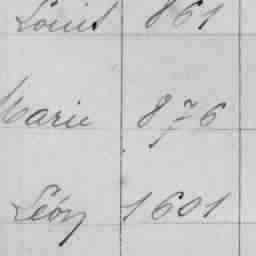 Louis 861
Marie 876
Léon 1601